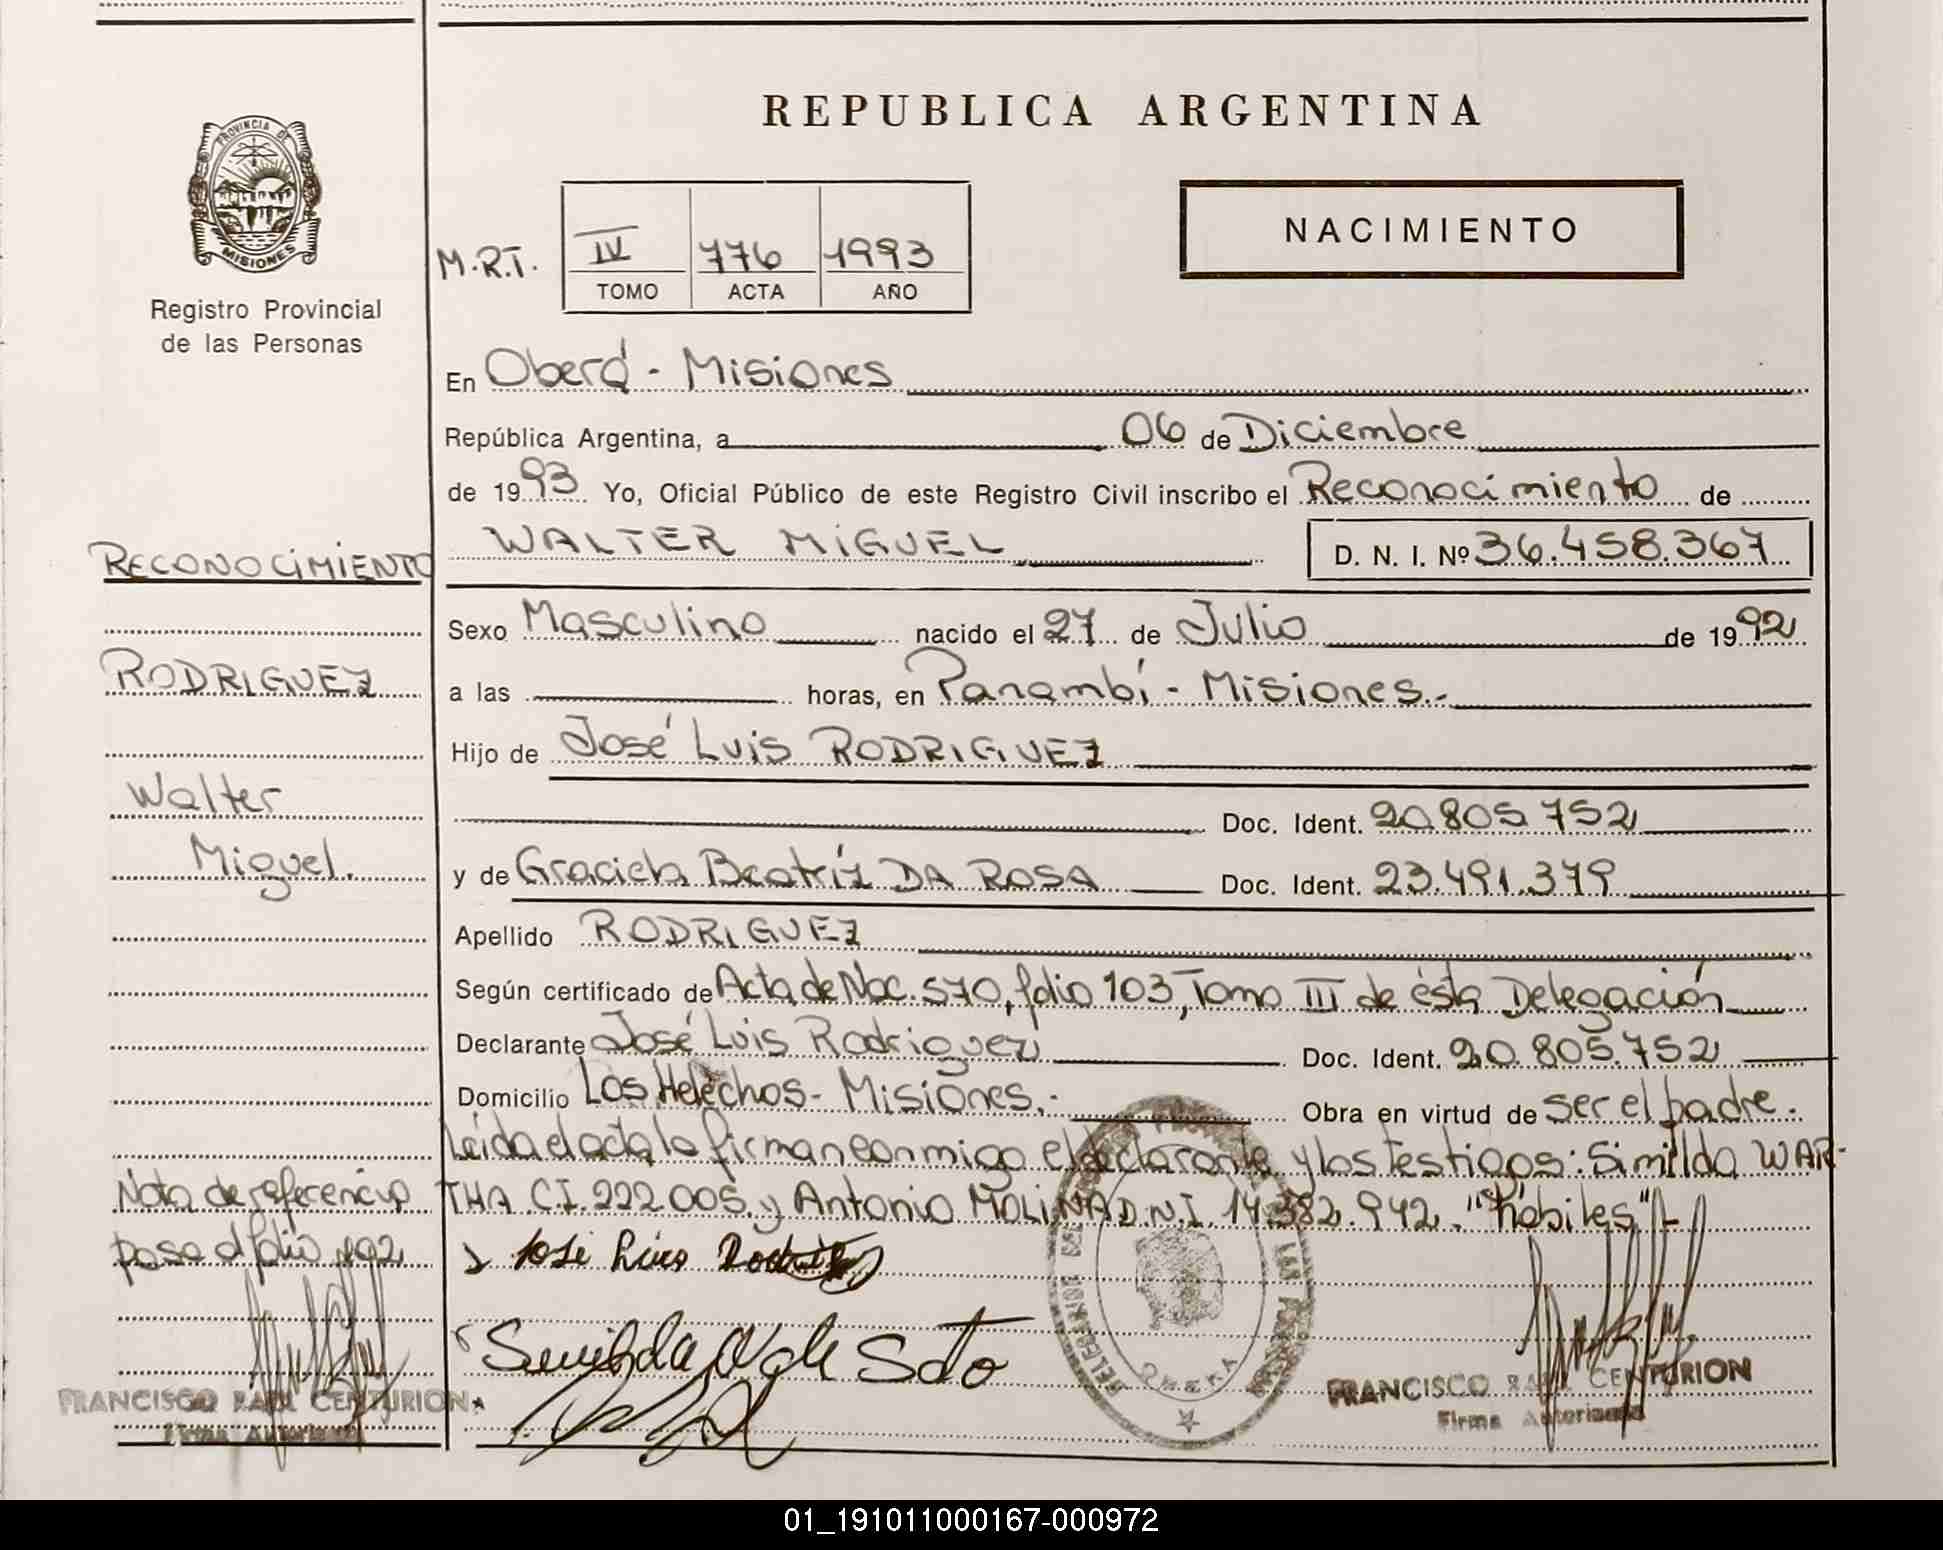 REPUBLICA ARGENTINA
PROVINCIA DE
MISIONES
Registro Provincial
de las Personas
NACIMIENTO
M.R.T.
IV 776 1993
TOMO ACTA AÑO
En Oberá - Misiones
República Argentina, a 06 de Diciembre
de 1993 Yo, Oficial Público de este Registro Civil inscribo el Reconocimiento de
WALTER MIGUEL D. N. I. Nº 36.458.367
Sexo Masculino nacido el 27 de Julio de 1992
a las horas, en Panambí - Misiones.-
Hijo de José Luis RODRIGUEZ
Doc. Ident. 20.805.752
y de Graciela Beatríz DA ROSA Doc. Ident. 23.491.379
Apellido RODRIGUEZ
Según certificado de Acta de Nac. 570, folio 103, Tomo III de ésta Delegación
Declarante José Luis Rodriguez Doc. Ident. 20.805.752
Domicilio Los Helechos - Misiones.- Obra en virtud de ser el padre.
Leída el acta la firman conmigo el declarante y los testigos: Similda WAR-
THA C.I. 222.005 y Antonio MOLINA D.N.I. 14.382.942. "hábiles"-
José Luis
de Soto
FRANCISCO RAUL CENTURION
Firma Autorizada
RECONOCIMIENTO
RODRIGUEZ
Walter
Miguel.
Nota de referencia
pasa al folio 192
FRANCISCO RAUL CENTURION
Firma Autorizada
01_191011000167-000972